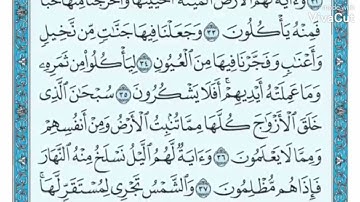 وَءَايَةٌ لَّهُمُ الْأَرْضُ الْمَيْتَةُ أَحْيَيْنَاهَا وَأَخْرَجْنَا مِنْهَا حَبًّا
فَمِنْهُ يَأْكُلُونَ ٣٣ وَجَعَلْنَا فِيهَا جَنَّاتٍ مِّن نَّخِيلٍ
وَأَعْنَابٍ وَفَجَّرْنَا فِيهَا مِنَ الْعُيُونِ ٣٤ لِيَأْكُلُوا مِن ثَمَرِهِ
وَمَا عَمِلَتْهُ أَيْدِيهِمْ أَفَلَا يَشْكُرُونَ ٣٥ سُبْحَانَ الَّذِي
خَلَقَ الْأَزْوَاجَ كُلَّهَا مِمَّا تُنبِتُ الْأَرْضُ وَمِنْ أَنفُسِهِمْ
وَمِمَّا لَا يَعْلَمُونَ ٣٦ وَءَايَةٌ لَّهُمُ الَّيْلُ نَسْلَخُ مِنْهُ النَّهَارَ
فَإِذَا هُم مُّظْلِمُونَ ٣٧ وَالشَّمْسُ تَجْرِي لِمُسْتَقَرٍّ لَّهَا
VivaCut